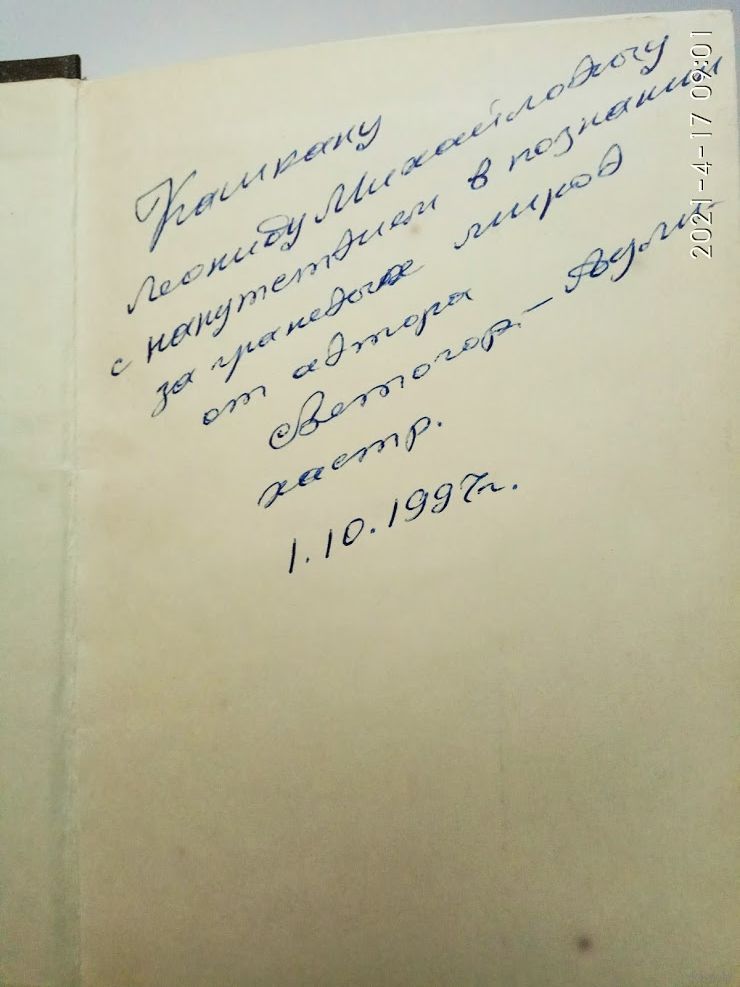 Кашкану
Леониду Михайловичу
с напутствием в познании
за граневых миров
от автора
Светогор. –
хастр.
1.10.1997г.
2021-4-17 09:01